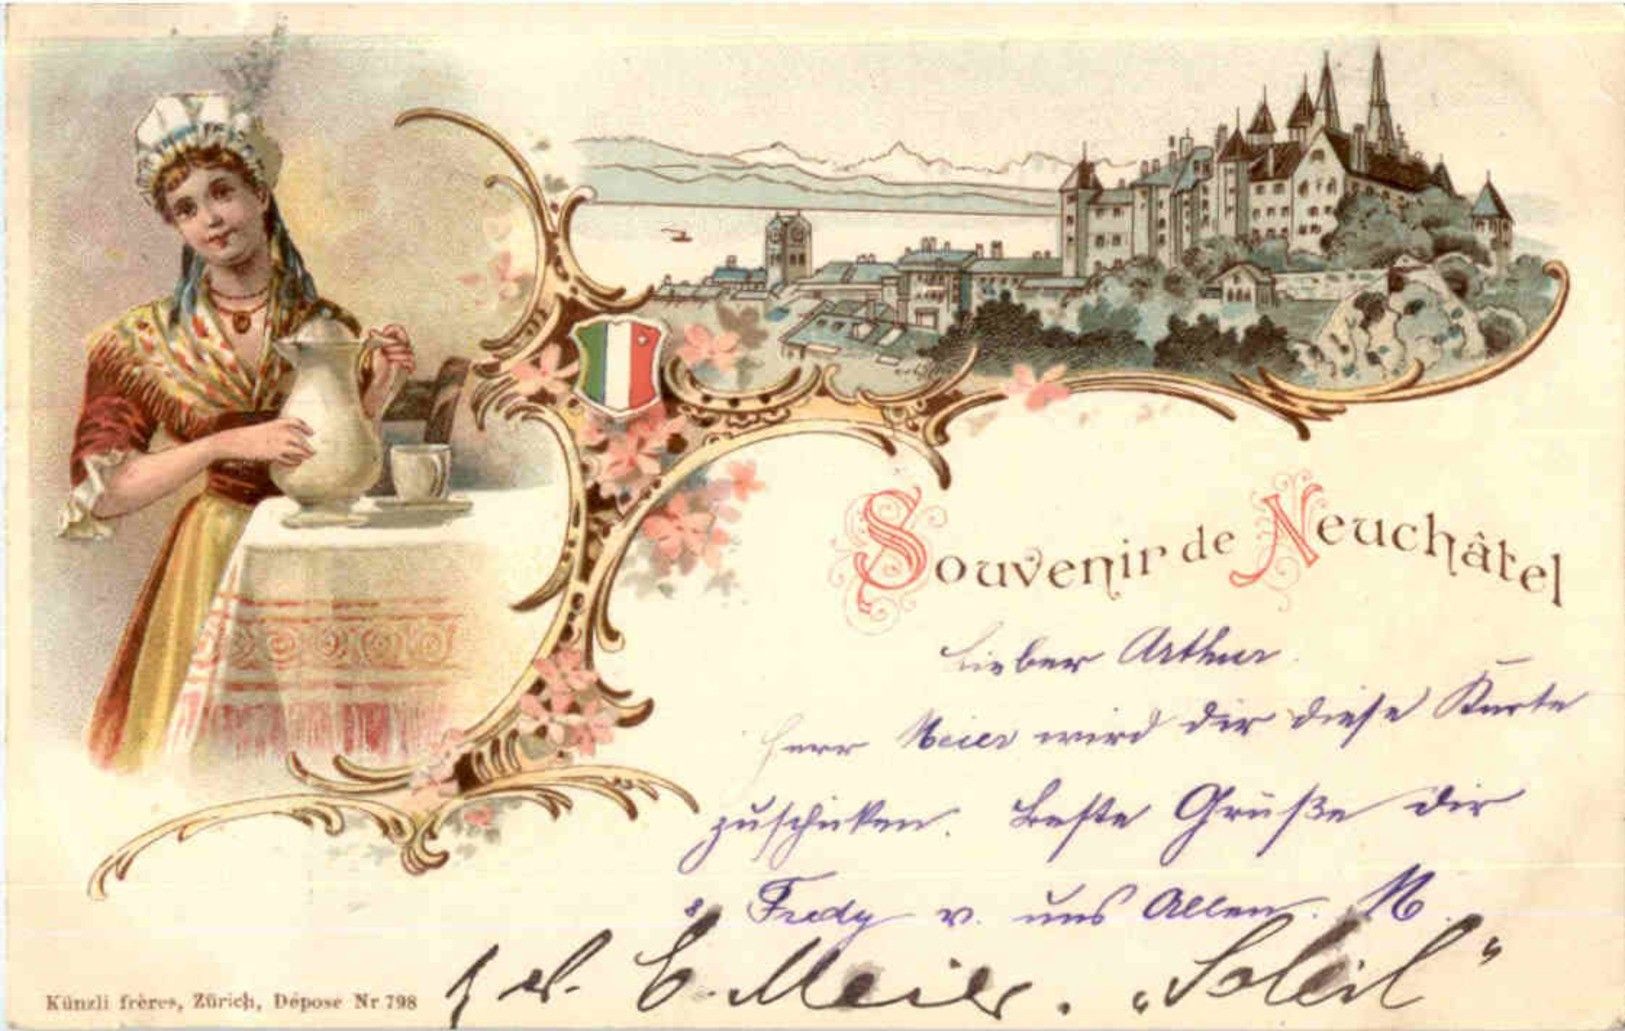 Souvenir de Neuchâtel
Lieber Arthur.
Herr Meier wird dir diese Karte
zuschicken. Beste Grüße dir
& Fredy v. uns Allen. M.
E. Meier. „Soleil"
Künzli frères, Zürich, Dépose Nr 798